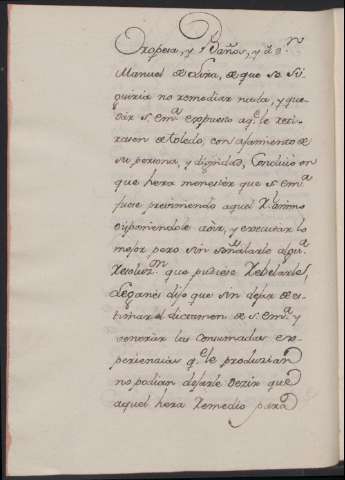 Oropesa, y Baños, y a Dn.
Manuel de Lira, de que se si
guiria no remediar nada, y que
dar S. Emª. expuesto aqe. le reti
rasen de toledo, con ajamiento de
su persona, y dignidad, Concluió en
que hera menester que S. Emª.
fuese previniendo aquel Rl. animo
disponiendole a oir, y executar lo
mejor pero sin señalarle algª.
Resoluzn. que pudiese Rebelarle,
Leganés dijo que sin dejar de es
timar el dictamen de S. Emª. y
venerar las consumadas ex
periencias qe. le produzian
no podian dejarle dezir que
aquel hera Remedio para